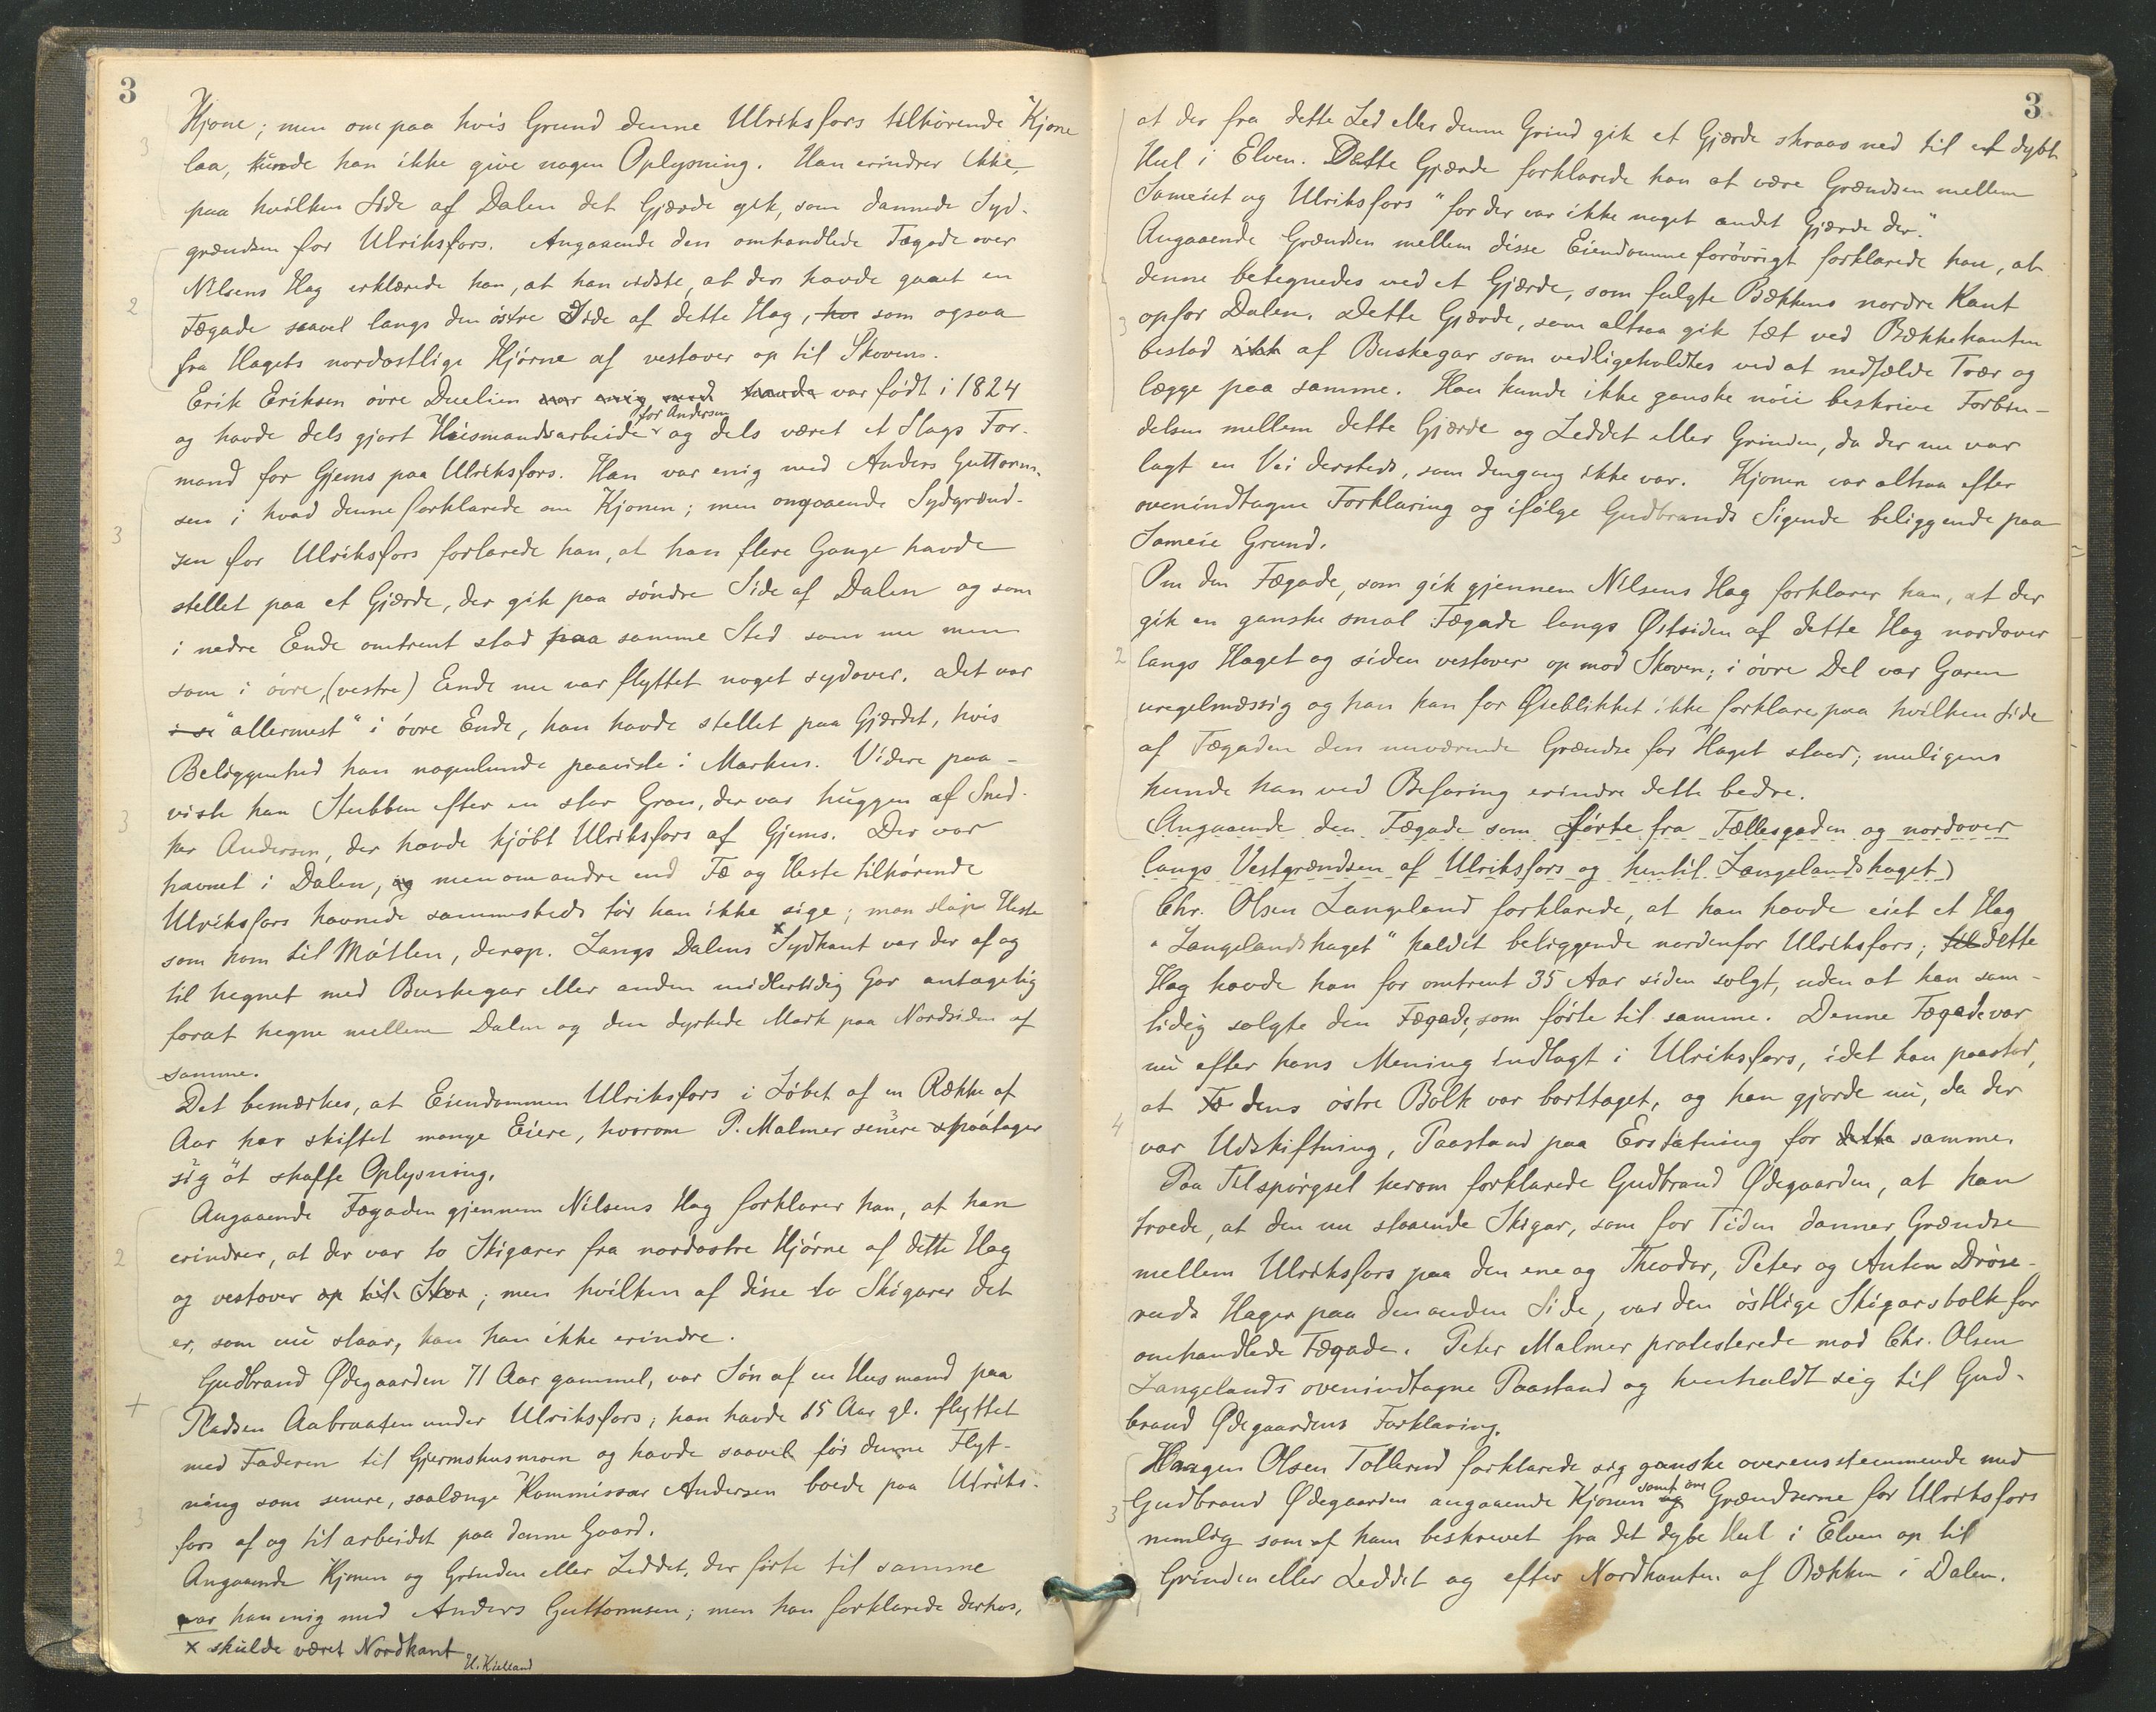 3
Kjone; men om paa hvis Grund denne Ulriksfors tilhörende Kjone
laa, kunde han ikke give nogen Oplysning. Han erindrer ikke,
paa hvilken Side af Dalen det Gjærde gik, som dannede Syd-
grændsen for Ulriksfors. Angaaende den omhandlede Fægade over
Nilsens Hag erklærede han, at han vidste, at der havde gaaet en
Fægade saavel langs den östre Side af dette Hag, hvr som ogsaa
fra Hagets nordostlige Hjörne af vestover op til Skoven.
Erik Eriksen övre Duelien var enig med havde var födt i 1824
og havde dels gjort Husmandsarbeide for Andersen og dels været et Slags For-
mand for Gjems paa Ulriksfors. Han var enig med Anders Guttorm-
sen i hvad denne forklarede om Kjonen; men angaaende Sydgrænd-
sen for Ulriksfors forlarede han, at han flere Gange havde
stellet paa et Gjærde, der gik paa söndre Side af Dalen og som
i nedre Ende omtrent stod paa samme Sted som nu men
som i övre, (vestre) Ende nu var flyttet noget sydover. Det var
i se "allermest" i övre Ende, han havde stellet paa Gjærdet, hvis
Beliggenhed han nogenlunde paaviste i Marken. Videre paa-
viste han Stubben efter en stor Gran, der var huggen af Sned-
ker Andersen, der havde kjöbt Ulriksfors af Gjems. Der var
havnet i Dalen, og men om andre end Fæ og Heste tilhörende
Ulriksfors havnede sammesteds tör han ikke sige; man slap Heste
som kom til Möllen, derop. Langs Dalens x Sydkant var der af og
til hegnet med Buskegar eller anden midlertidig Gar antagelig
forat hegne mellem Dalen og den dyrkede Mark paa Nordsiden af
samme.
Det bemærkes, at Eiendommen Ulriksfors i Löbet af en Række af
Aar har skiftet mange Eiere, hvorom P. Malmer senere paatager
sig at skaffe Oplysning.
Angaaende Fægaden gjennem Nilsens Hag forklarer han, at han
erindrer, at der var to Skigarer fra nordostre Hjörne af dette Hag
og vestover op til Skov; men hvilken af disse to Skigarer det
er, som nu staar, kan han ikke erindre.
Gudbrand Ødegaarden 71 Aar gammel, var Sön af en Husmand paa
Pladsen Aabraaten under Ulriksfors; han havde 15 Aar gl. flyttet
med Faderen til Gjermshusmoen og havde saavel för denne Flyt-
ning som senere, saalænge Kommissær Andersen boede paa Ulriks-
fors af og til arbeidet paa denne Gaard.
Angaaende Kjonen og Grinden eller Leddet, der förte til samme
var han enig med Anders Guttormsen; men han forklarede derhos,
x skulde været Nordkant
U. Kielland
3
at der fra dette Led eller denne Grind gik et Gjærde skraas ned til et dybt
Hul i Elven. Dette Gjærde forklarede han at være Grændsen mellem
Sameiet og Ulriksfors "for der var ikke noget andet Gjærde der."
Angaaende Grændsen mellem disse Eiendomme forövrigt forklarede han, at
denne betegnedes ved et Gjærde, som fulgte Bækkens nordre Kant
opfor Dalen. Dette Gjærde, som altsaa gik tæt ved Bækkekanten
bestod ikk af Buskegar som vedligeholdtes ved at nedfælde Trær og
lægge paa samme. Han kunde ikke ganske nöie beskrive Forbin-
delsen mellem dette Gjærde og Leddet eller Grinden, da der nu var
lagt en Vei dersteds, som dengang ikke var. Kjonen var altsaa efter
ovenindtagne Forklaring og ifölge Gudbrands Sigende beliggende paa
Sameie Grund.
Om den Fægade, som gik gjennem Nilsens Hag forklarer han, at der
gik en ganske smal Fægade langs Østsiden af dette Hag nordover
langs Haget og siden vestover op mod Skoven; i övre Del var Garen
uregelmæssig og han kan for Øieblikket ikke forklare paa hvilken Side
af Fægaden den nuværende Grændse for Haget staar; muligens
kunde han ved Befaring erindre dette bedre.
(Angaaende den Fægade som förte fra Fællesgaden og nordover
langs Vestgrændsen af Ulriksfors og hentil Langelandshaget)
Chr. Olsen Langeland forklarede, at han havde eiet et Hag
"Langelandshaget" kaldet beliggende nordenfor Ulriksfors; til dette
Hag havde han for omtrent 35 Aar siden solgt, uden at han sam-
tidig solgte den Fægade, som förte til samme. Denne Fægade var
nu efter hans Mening indlagt i Ulriksfors, idet han paastod,
at Fæ dens östre Bolk var borttaget, og han gjorde nu, da der
var Udskiftning, Paastand paa Erstatning for dette samme.
Paa Tilspörgsel herom forklarede Gudbrand Ødegaarden, at han
troede, at den nu staaende Skigar, som for Tiden danner Grændse
mellem Ulriksfors paa den ene og Theodor, Peter og Anton Dröse-
ruds Hager paa den anden Side, var den östlige Skigarsbolk for
omhandlede Fægade. Peter Malmer protesterede mod Chr. Olsen
Langelands ovenindtagne Paastand og henholdt sig til Gud-
brand Ødegaardens Forklaring.
Haagen Olsen Tollerud forklarede sig ganske overensstemmende med
Gudbrand Ødegaarden angaaende Kjonen og samt om Grændserne for Ulriksfors
nemlig som af ham beskrevet fra det dybe Hul i Elven op til
Grinden eller Leddet og efter Nordkanten af Bækken i Dalen.